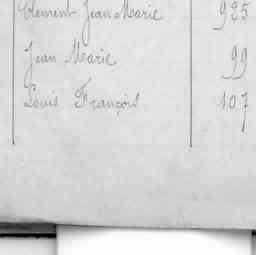 Clément Jean Marie 925
Jean Marie 99
Louis François 107